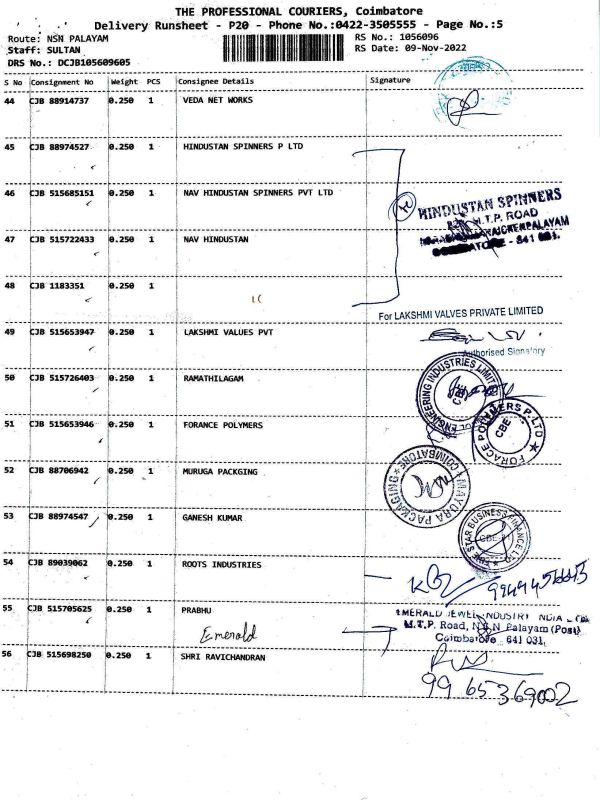 THE PROFESSIONAL COURIERS, Coimbatore
Delivery Runsheet - P20 - Phone No.:0422-3505555 - Page No.:5
Route: NSN PALAYAM RS No.: 1056096
Staff: SULTAN RS Date: 09-Nov-2022
DRS No.: DCJB105609605
S No Consignment No Weight PCS Consignee Details Signature
44 CJB 88914737 0.250 1 VEDA NET WORKS
45 CJB 88974527 0.250 1 HINDUSTAN SPINNERS P LTD
46 CJB 515685151 0.250 1 NAV HINDUSTAN SPINNERS PVT LTD
HINDUSTAN SPINNERS
M.T.P. ROAD
47 CJB 515722433 0.250 1 NAV HINDUSTAN
COIMBATORE - 641 031.
48 CJB 1183351 0.250 1
For LAKSHMI VALVES PRIVATE LIMITED
49 CJB 515653947 0.250 1 LAKSHMI VALUES PVT
Authorised Signatory
50 CJB 515726403 0.250 1 RAMATHILAGAM
ENGINEERING INDUSTRIES LIMITED
51 CJB 515653946 0.250 1 FORANCE POLYMERS
FORACE POLYMERS P.LTD
CBE
52 CJB 88706942 0.250 1 MURUGA PACKGING
MAYORA PACKAGING
COIMBATORE
53 CJB 88974547 0.250 1 GANESH KUMAR
STAR BUSINESS FINANCE LTD
54 CJB 89039062 0.250 1 ROOTS INDUSTRIES
55 CJB 515705625 0.250 1 PRABHU
Emerald
EMERALD JEWEL INDUSTRY INDIA LTD
M.T.P. Road, N.S.N Palayam (Post)
Coimbatore 641 031.
56 CJB 515698250 0.250 1 SHRI RAVICHANDRAN
9965369002